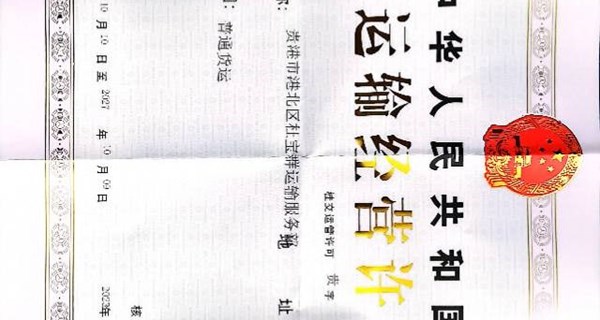 中华人民共和国
运输经营许
桂交运管许可 贵 字
称：贵港市港北区杜宝 运输服务部地 址
：普通货运
核
10 月 10 日 至 2027 年 10 月 09 日 2023年